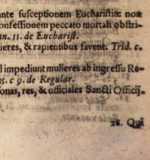 ante susceptionem Eucharistiæ non
confessionem peccato mortali obstri-
an. 11. de Eucharist.
ieres, & rapientibus favent. Trid. c.
d impediunt mulieres ab ingressu Re-
5. c 9. de Regular.
onas, res, & officiales Sancti Officij.
18. Qui